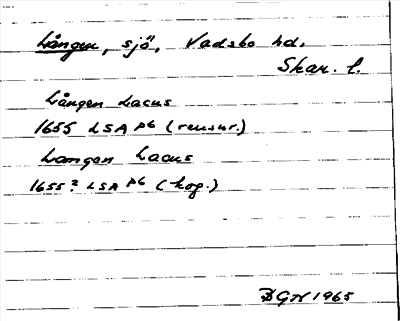 Lången, sjö, Vadsbo hd.
Skar. l.
Lången Lacus
1655 LSA P6 (renskr.)
Langen Lacus
1655? LSA P6 (kog.)
BGN 1965